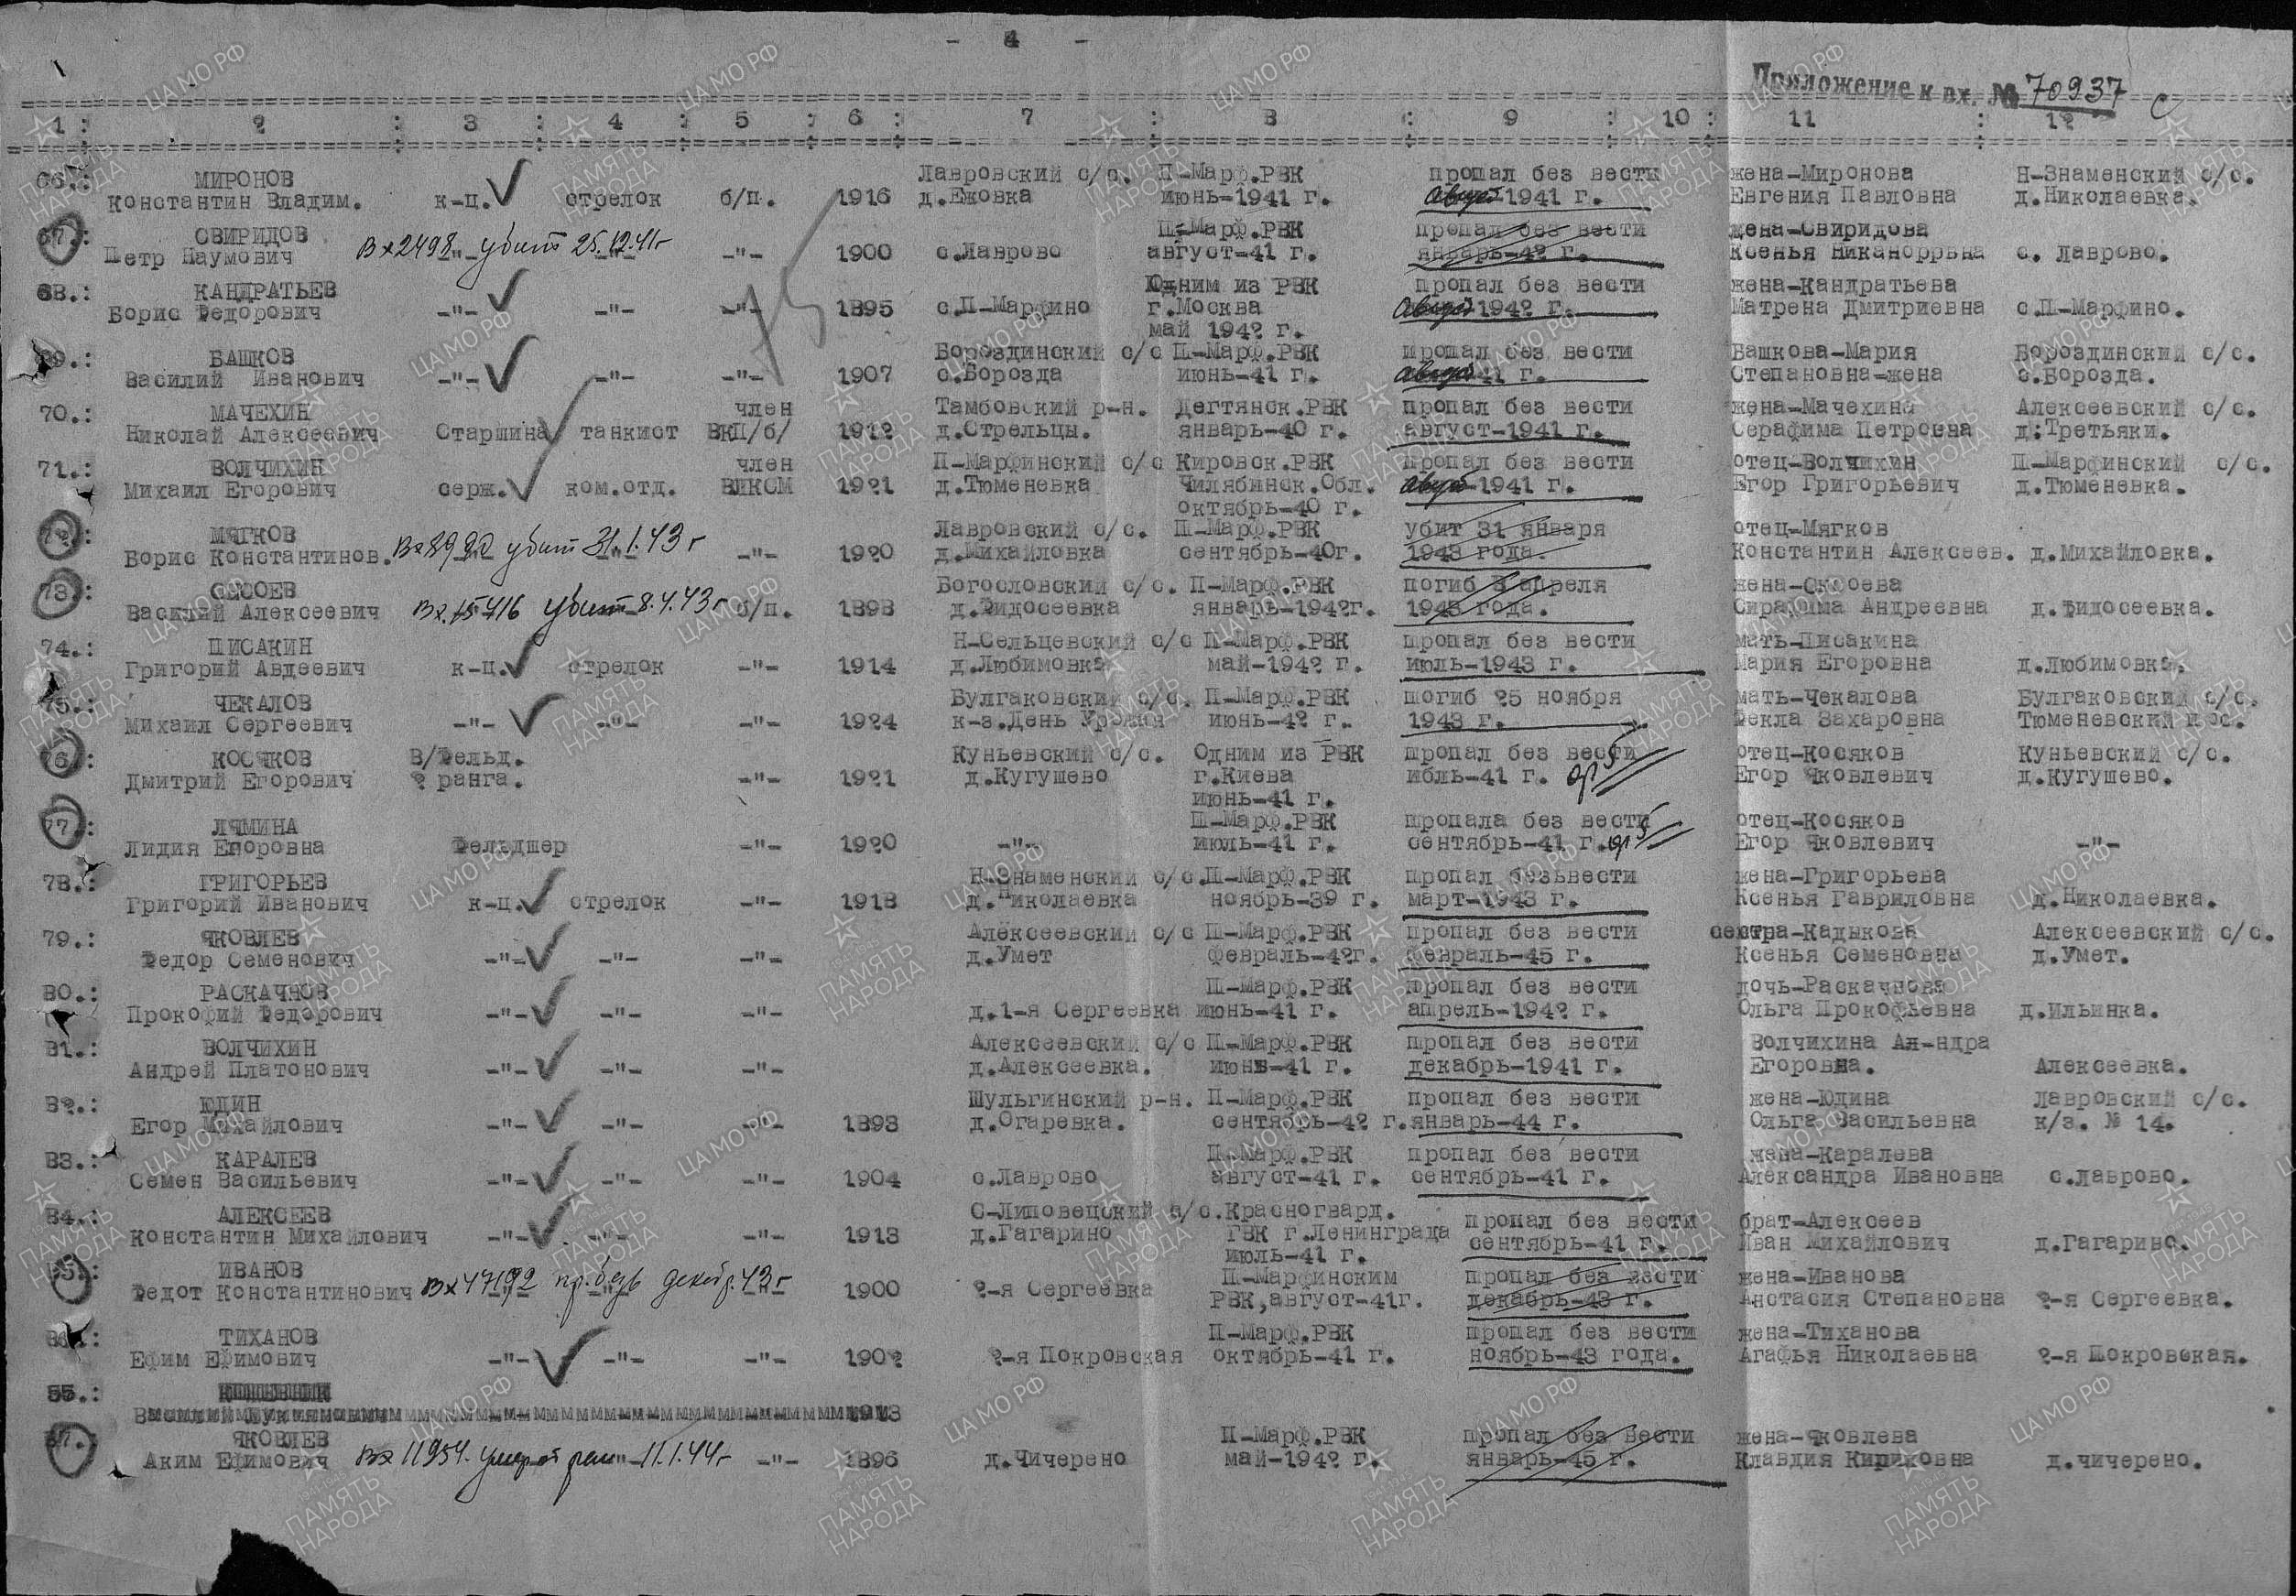 - 4 -
Приложение к вх. № 70937 с
1 : 2 : 3 : 4 : 5 : 6 : 7 : 8 : 9 : 10 : 11 : 12
66.: МИРОНОВ Лавровский с/с. П-Марф.РВК пропал без вести жена-Миронова Н-Знаменский с/с.
Константин Владим. к-ц. стрелок б/п. 1916 д.Ежовка июнь-1941 г. август 1941 г. Евгения Павловна д.Николаевка.
67.: СВИРИДОВ П-Марф.РВК пропал без вести жена-Свиридова
Петр Наумович Вх 2498 убит 25.12.41г -"- 1900 с.Лаврово август-41 г. январь-42 г. Ксенья Никаноррвна с. Лаврово.
68.: КАНДРАТЬЕВ Одним из РВК пропал без вести жена-Кандратьева
Борис Федорович -"- -"- -"- 1895 с.П-Марфино г.Москва август 1942 г. Матрена Дмитриевна с.П-Марфино.
май 1942 г.
69.: БАШКОВ Бороздинский с/с П-Марф.РВК пропал без вести Башкова-Мария Бороздинский с/с.
Василий Иванович -"- -"- -"- 1907 с.Борозда июнь-41 г. август 41 г. Степановна-жена с.Борозда.
70.: МАЧЕХИН член Тамбовский р-н. Дегтянск.РВК пропал без вести жена-Мачехина Алексеевский с/с.
Николай Алексеевич Старшина танкист ВКП/б/ 1912 д.Стрельцы. январь-40 г. август-1941 г. Серафима Петровна д:Третьяки.
71.: ВОЛЧИХИН член П-Марфинский с/с Кировск.РВК пропал без вести отец-Волчихин П-Марфинский с/с.
Михаил Егорович серж. ком.отд. ВЛКСМ 1921 д.Тюменевка Чилябинск.Обл. август 1941 г. Егор Григорьевич д.Тюменевка.
октябрь-40 г.
72.: МЯГКОВ Лавровский с/с. П-Марф.РВК убит 31 января отец-Мягков
Борис Константинов. убит 31.1.43 г -"- 1920 д.Михайловка сентябрь-40г. 1943 года. Константин Алексеев. д.Михайловка.
73.: СЫСОЕВ Богословский с/с. П-Марф.РВК погиб 8 апреля жена-Сысоева
Василий Алексеевич Вх.15416 убит 8.4.43г б/п. 1898 д.Фидосеевка январь-1942г. 1943 года. Сирафима Андреевна д.Фидосеевка.
74.: ПИСАКИН Н-Сельцевский с/с П-Марф.РВК пропал без вести мать-Писакина
Григорий Авдеевич к-ц. стрелок -"- 1914 д.Любимовка май-1942 г. июль-1943 г. Мария Егоровна д.Любимовка.
75.: ЧЕКАЛОВ Булгаковский с/с. П-Марф.РВК погиб 25 ноября мать-Чекалова Булгаковский с/с.
Михаил Сергеевич -"- -"- -"- 1924 к-з.День Урожая июнь-42 г. 1943 г. Фекла Захаровна Тюменевский пос.
76.: КОСЯКОВ В/Фельд. Куньевский с/с. Одним из РВК пропал без вести отец-Косяков Куньевский с/с.
Дмитрий Егорович 2 ранга. -"- 1921 д.Кугушево г.Киева ибль-41 г. Егор Яковлевич д.Кугушево.
июнь-41 г.
77.: ЛЯМИНА П-Марф.РВК пропала без вести отец-Косяков
Лидия Егоровна Фельдшер -"- 1920 -"- июль-41 г. сентябрь-41 г. Егор Яковлевич -"-
78.: ГРИГОРЬЕВ Н-Знаменский с/с.П-Марф.РВК пропал безьвести жена-Григорьева
Григорий Иванович к-ц. стрелок -"- 1918 д.Николаевка ноябрь-39 г. март-1943 г. Ксенья Гавриловна д.Николаевка.
79.: ЯКОВЛЕВ Алексеевский с/с П-Марф.РВК пропал без вести сестра-Кадыкова Алексеевский с/с.
Федор Семенович -"- -"- -"- д.Умет февраль-42г. февраль-45 г. Ксенья Семеновна д.Умет.
80.: РАСКАЧНОВ П-Марф.РВК пропал без вести дочь-Раскачнова
Прокофий Федорович -"- -"- -"- д.1-я Сергеевка июнь-41 г. апрель-1942 г. Ольга Прокофьевна д.Ильинка.
81.: ВОЛЧИХИН Алексеевский с/с П-Марф.РВК пропал без вести Волчихина Ал-ндра
Андрей Платонович -"- -"- -"- д.Алексеевка. июнь-41 г. декабрь-1941 г. Егоровна. Алексеевка.
82.: ЮДИН Шульгинский р-н. П-Марф.РВК пропал без вести жена-Юдина Лавровский с/с.
Егор Михайлович -"- -"- -"- 1898 д.Огаревка. сентябрь-42 г. январь-44 г. Ольга Васильевна к/з. № 14.
83.: КАРАЛЕВ П-Марф.РВК пропал без вести жена-Каралева
Семен Васильевич -"- -"- -"- 1904 с.Лаврово август-41 г. сентябрь-41 г. Александра Ивановна с.Лаврово.
84.: АЛЕКСЕЕВ С-Липовецский с/с.Красногвард. пропал без вести брат-Алексеев
Константин Михайлович -"- -"- -"- 1918 д.Гагарино РВК г.Ленинграда сентябрь-41 г. Иван Михайлович д.Гагарино.
июль-41 г.
85.: ИВАНОВ П-Марфинским пропал без вести жена-Иванова
Федот Константинович Вх 47192 пр.безв декабр.43г -"- 1900 2-я Сергеевка РВК,август-41г. декабрь-43 г. Анстасия Степановна 2-я Сергеевка.
86.: ТИХАНОВ П-Марф.РВК пропал без вести жена-Тиханова
Ефим Ефимович -"- -"- -"- 1902 2-я Покровская октябрь-41 г. ноябрь-43 года. Агафья Николаевна 2-я Покровская.
87.: ЯКОВЛЕВ П-Марф.РВК пропал без вести жена-Яковлева
Аким Ефимович Вх 11954. умер от ран 11.1.44г -"- 1896 д.Чичерено май-1942 г. январь-45 г. Клавдия Кириковна д.чичерено.